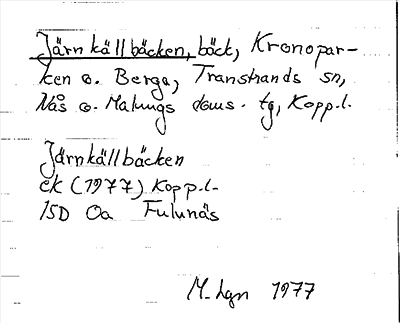 Järnkällbäcken, bäck, Kronopar-
ken o. Berga, Transtrands sn,
Nås o. Malungs doms. tg, Kopp.l.
Järnkällbäcken
ek (1977) Kopp.l.
15D Oa Fulunäs
M. Lgn 1977